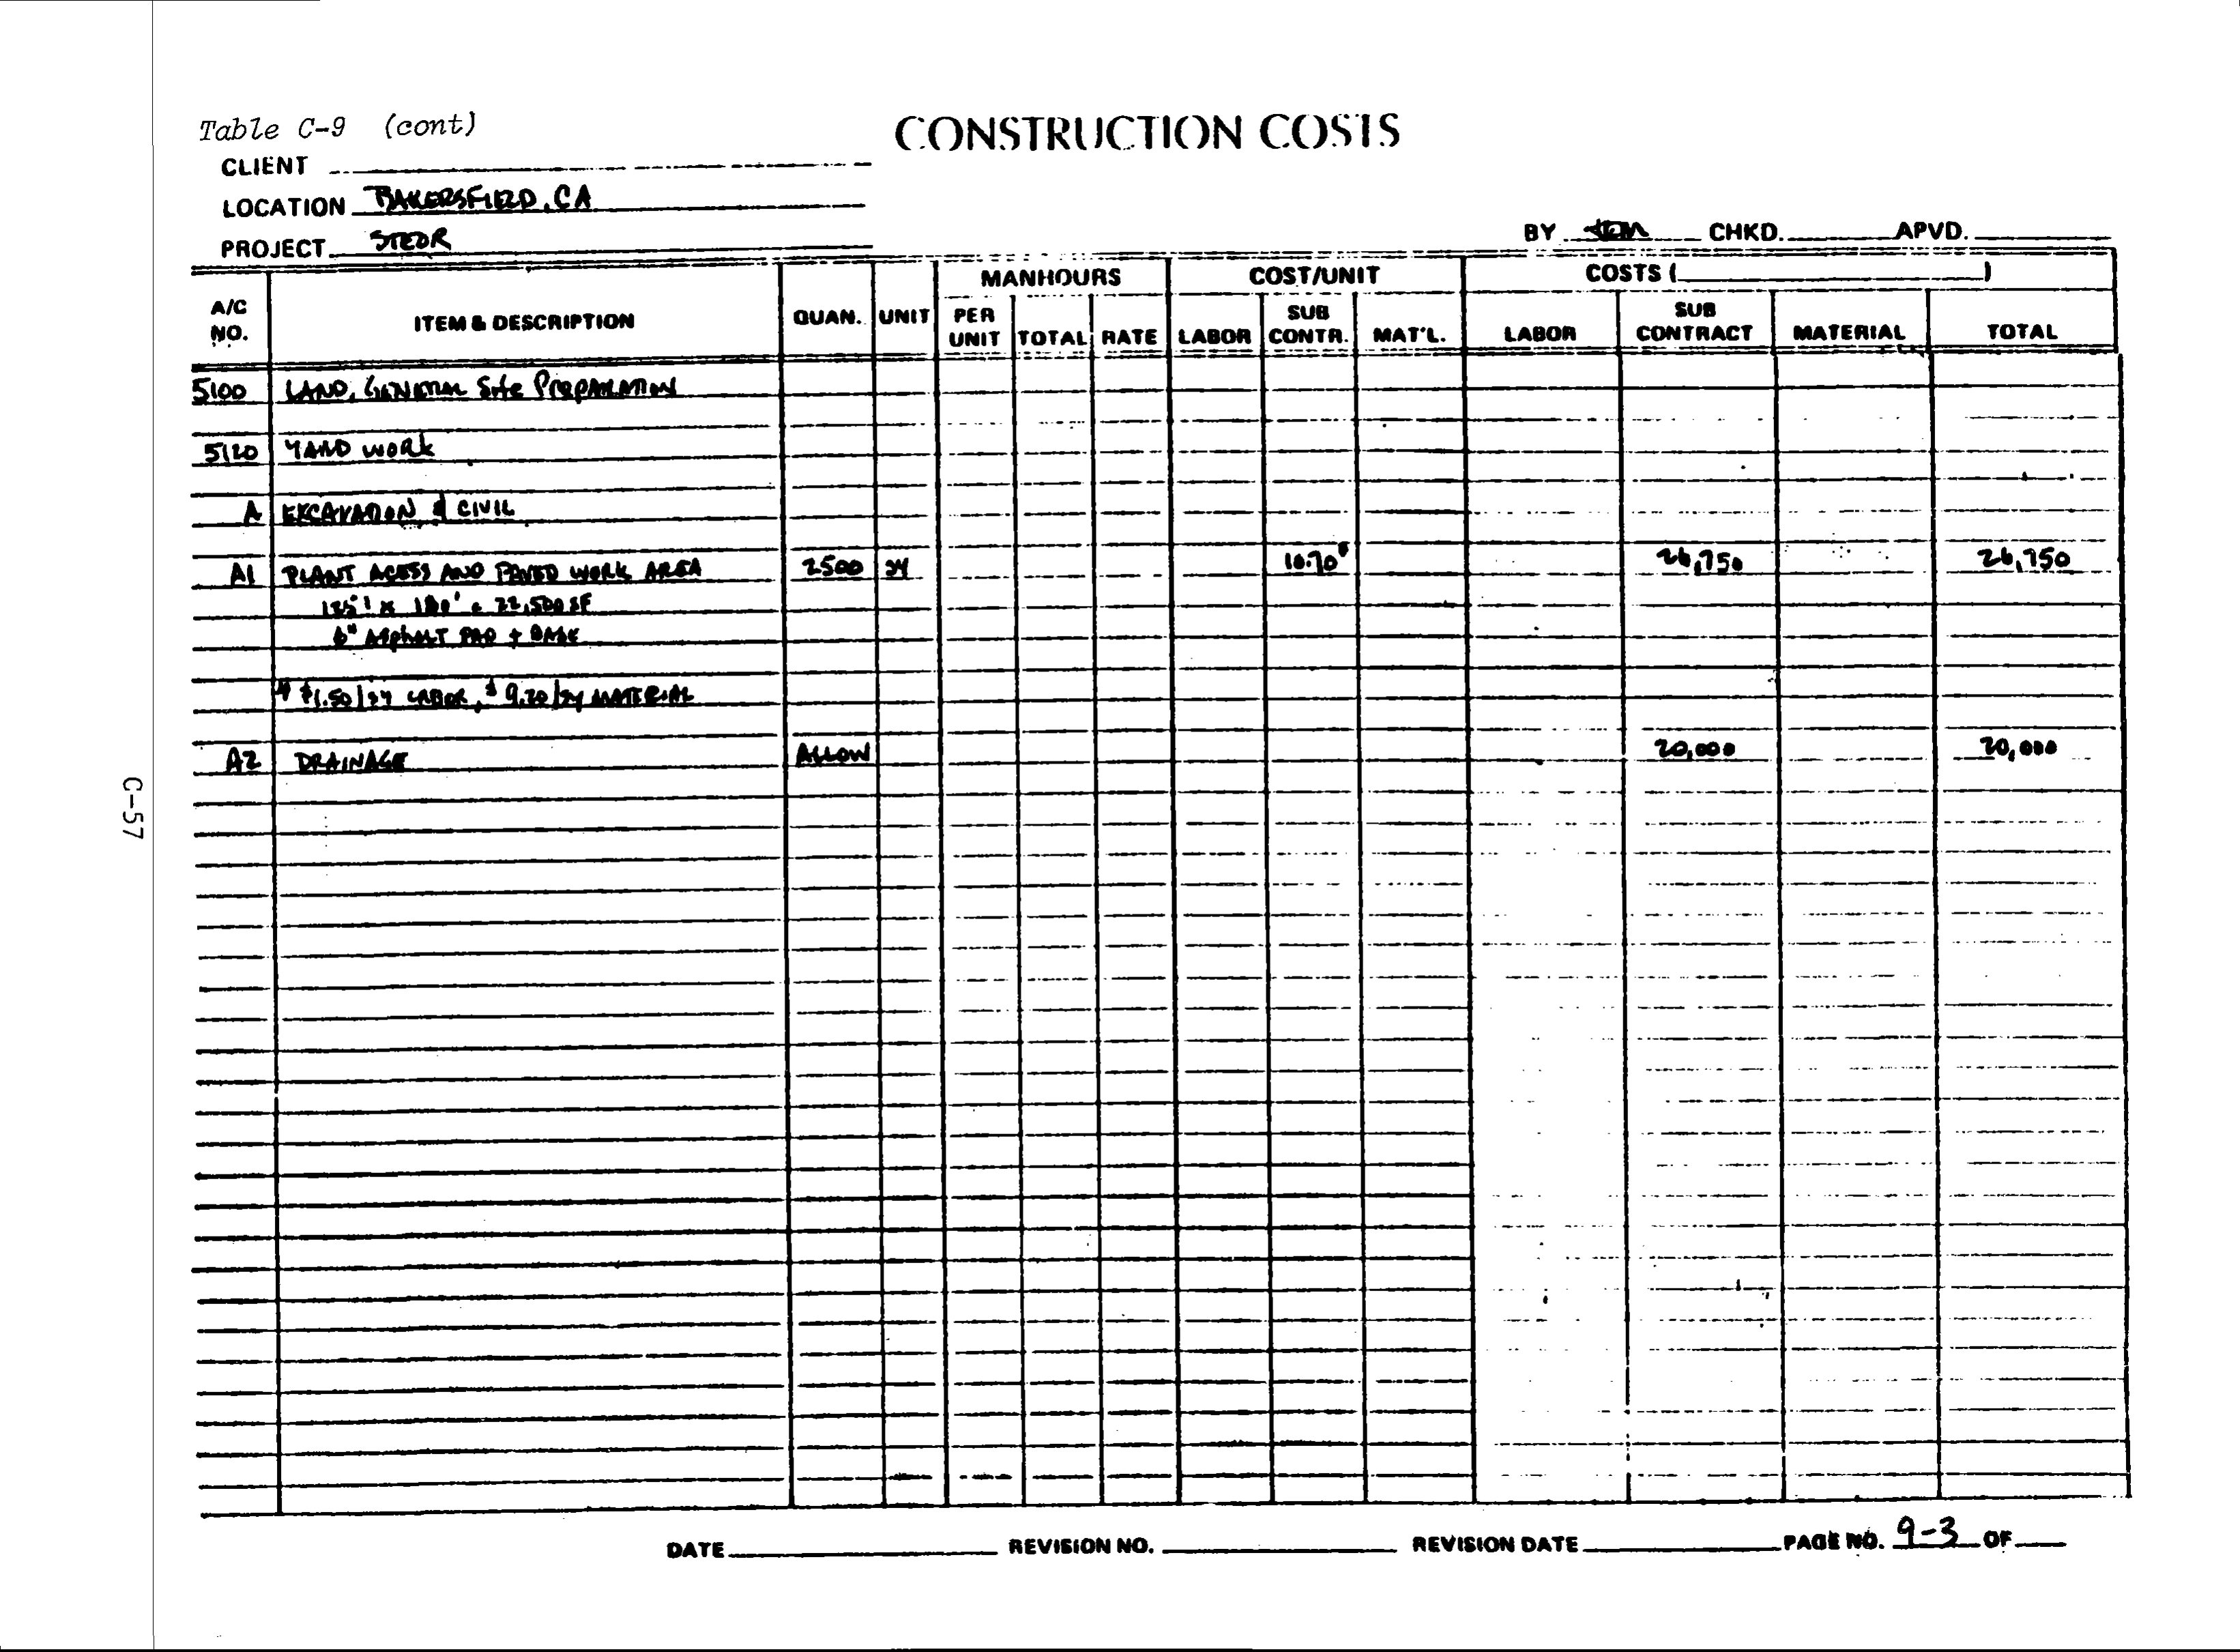 Table C-9 (cont)
CONSTRUCTION COSTS
CLIENT
LOCATION BAKERSFIELD, CA
PROJECT STEOR
BY CHKD. APVD.
A/C NO. ITEM & DESCRIPTION QUAN. UNIT MANHOURS COST/UNIT COSTS ( )
PER UNIT TOTAL RATE LABOR SUB CONTR. MAT'L. LABOR SUB CONTRACT MATERIAL TOTAL
5100 LAND, GENERAL Site PREPARATION
5120 YARD WORK
A EXCAVATION & CIVIL
A1 PLANT ACESS AND PAVED WORK AREA 2500 SY 10.70* 26,750 26,750
125' x 180' = 22,500 SF
6" ASPHALT PAD + BASE
* $1.50/SY LABOR, $9.20/SY MATERIAL
A2 DRAINAGE ALLOW 20,000 20,000
C-57
DATE REVISION NO. REVISION DATE PAGE NO. 9-3 OF